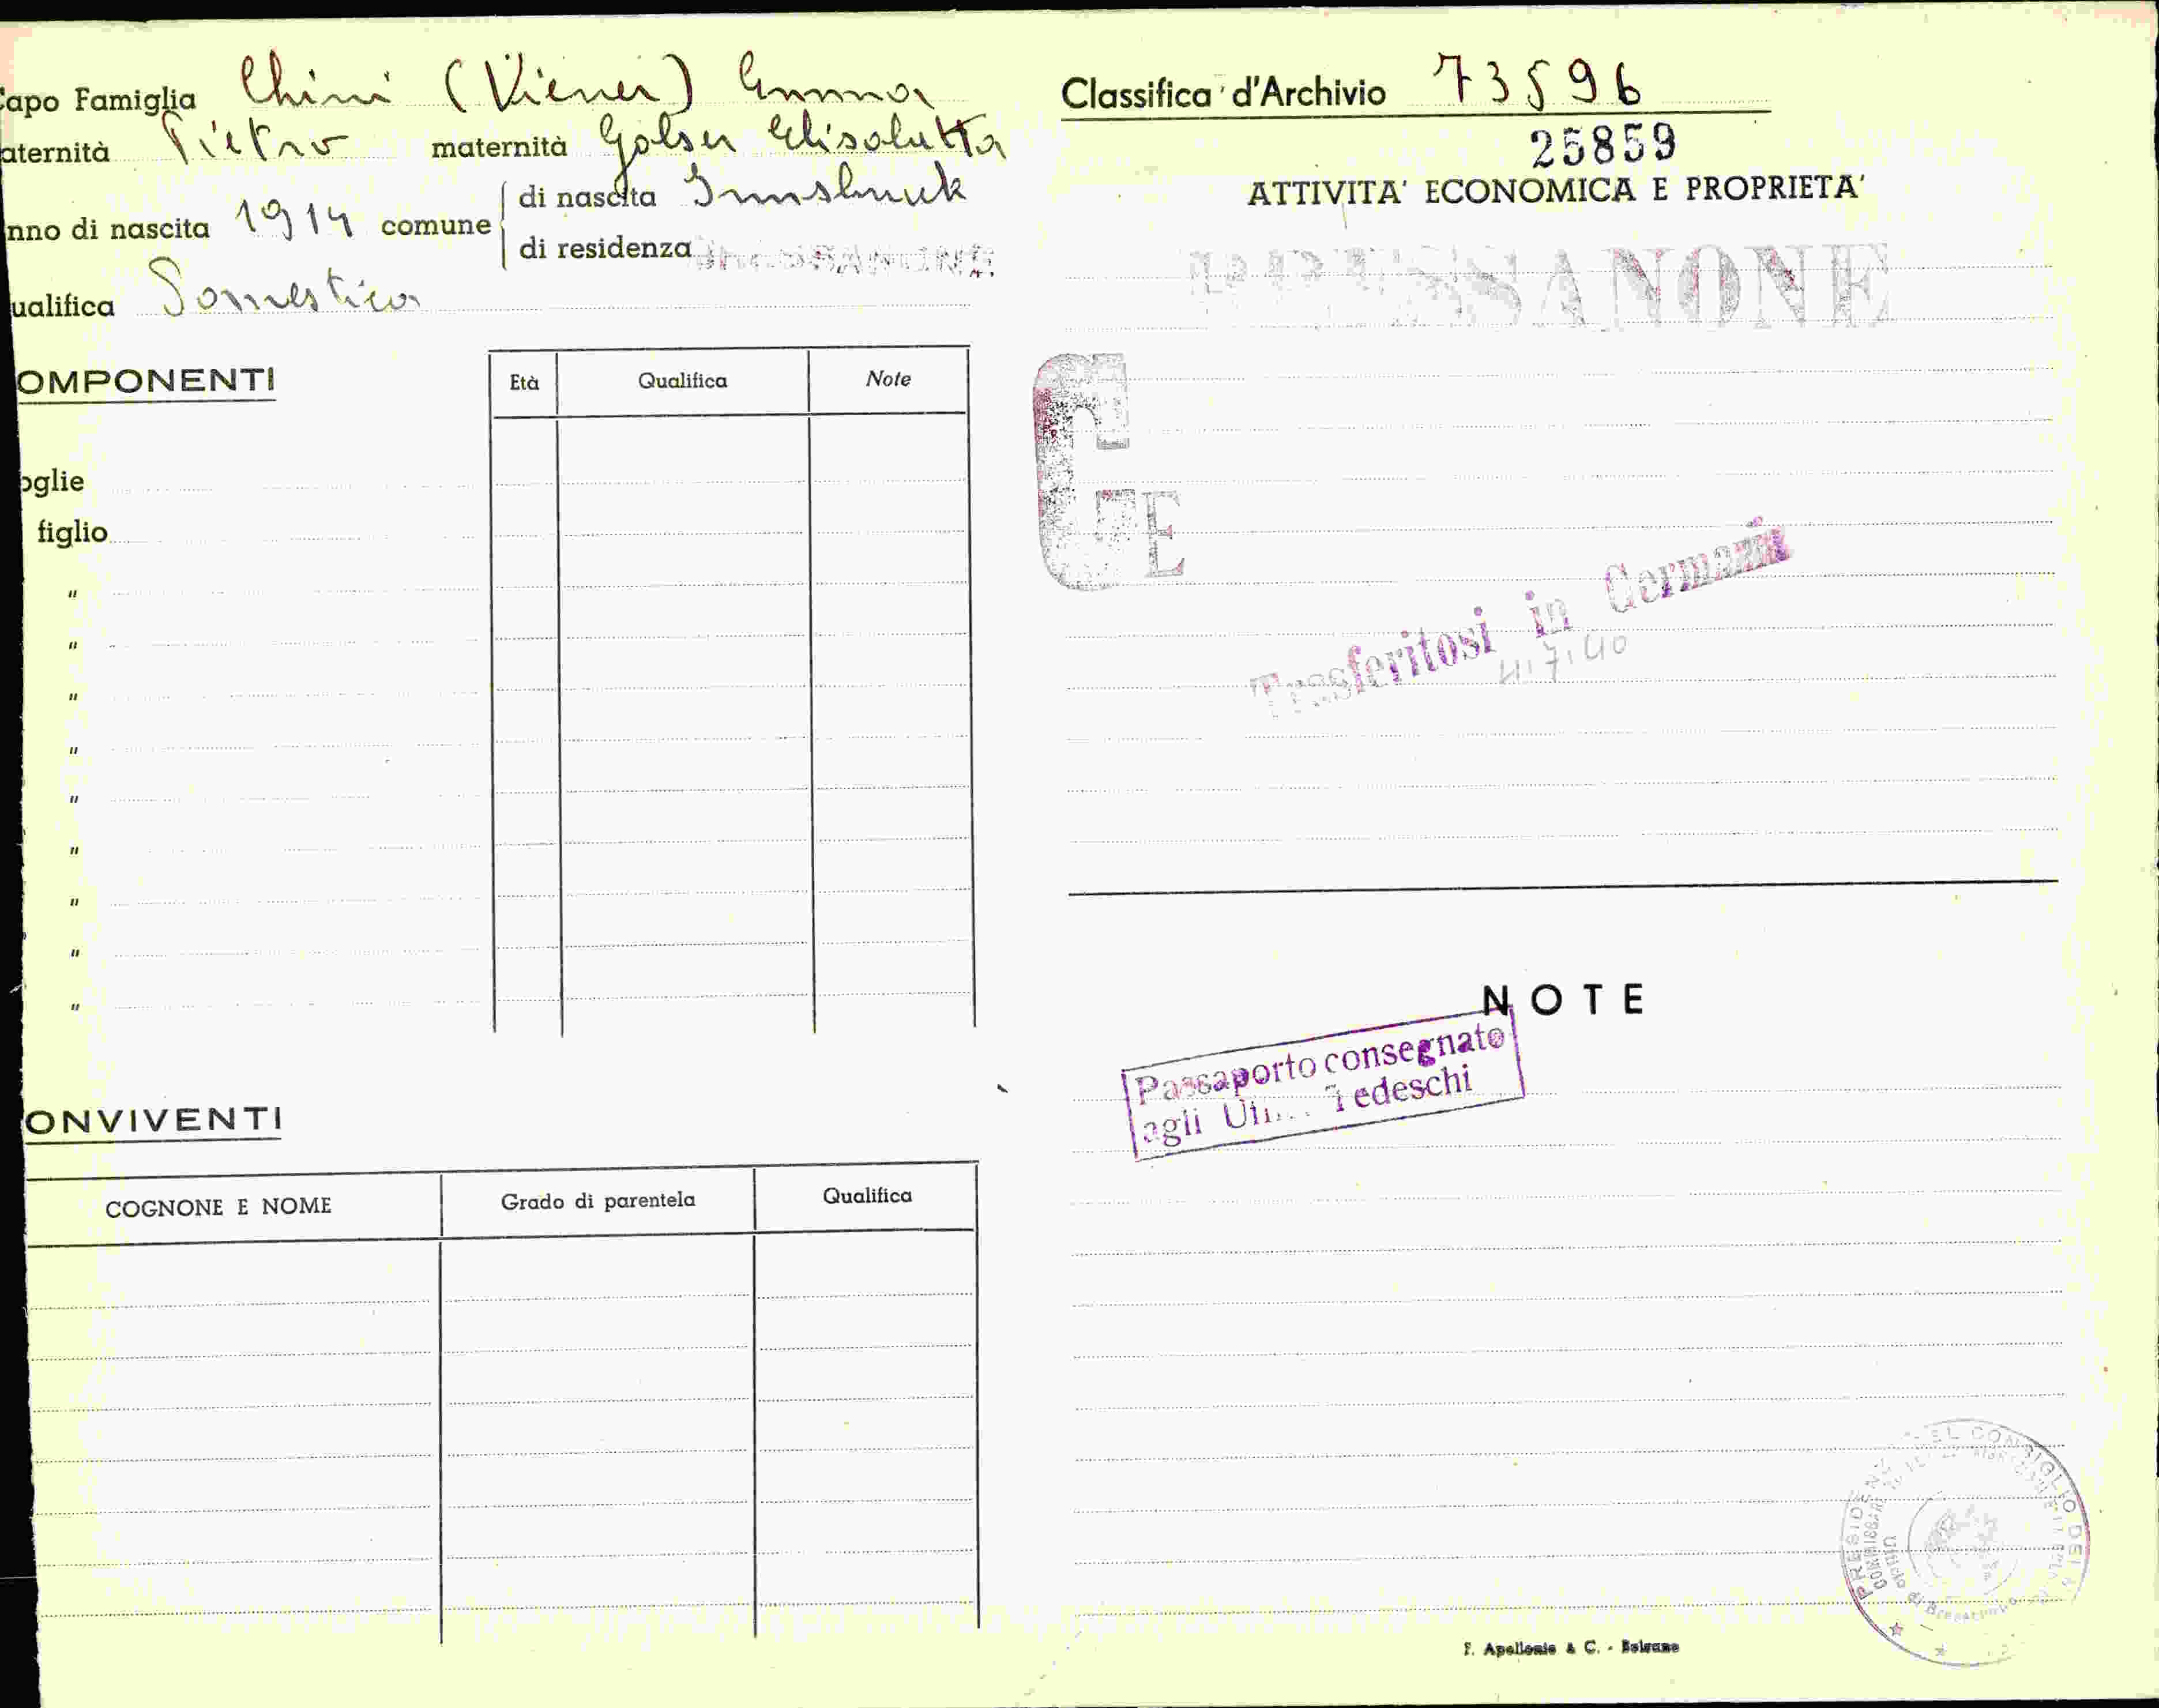 Capo Famiglia Chini (Viener) Emma
aternità Pietro maternità Golser Elisabetta
nno di nascita 1914 comune di nascita Innsbruck
di residenza
ualifica Domestica
OMPONENTI
Età Qualifica Note
oglie
figlio
"
"
"
"
"
"
"
"
"
ONVIVENTI
COGNONE E NOME Grado di parentela Qualifica
Classifica d'Archivio 73596
25859
ATTIVITA' ECONOMICA E PROPRIETA'
BRESSANONE
E
Trasferitosi in Germania
4.7.40
NOTE
Passaporto consegnato
agli Tedeschi
PRESIDENZA DEL CONSIGLIO DEI
F. Apollonio & C. - Bolzano